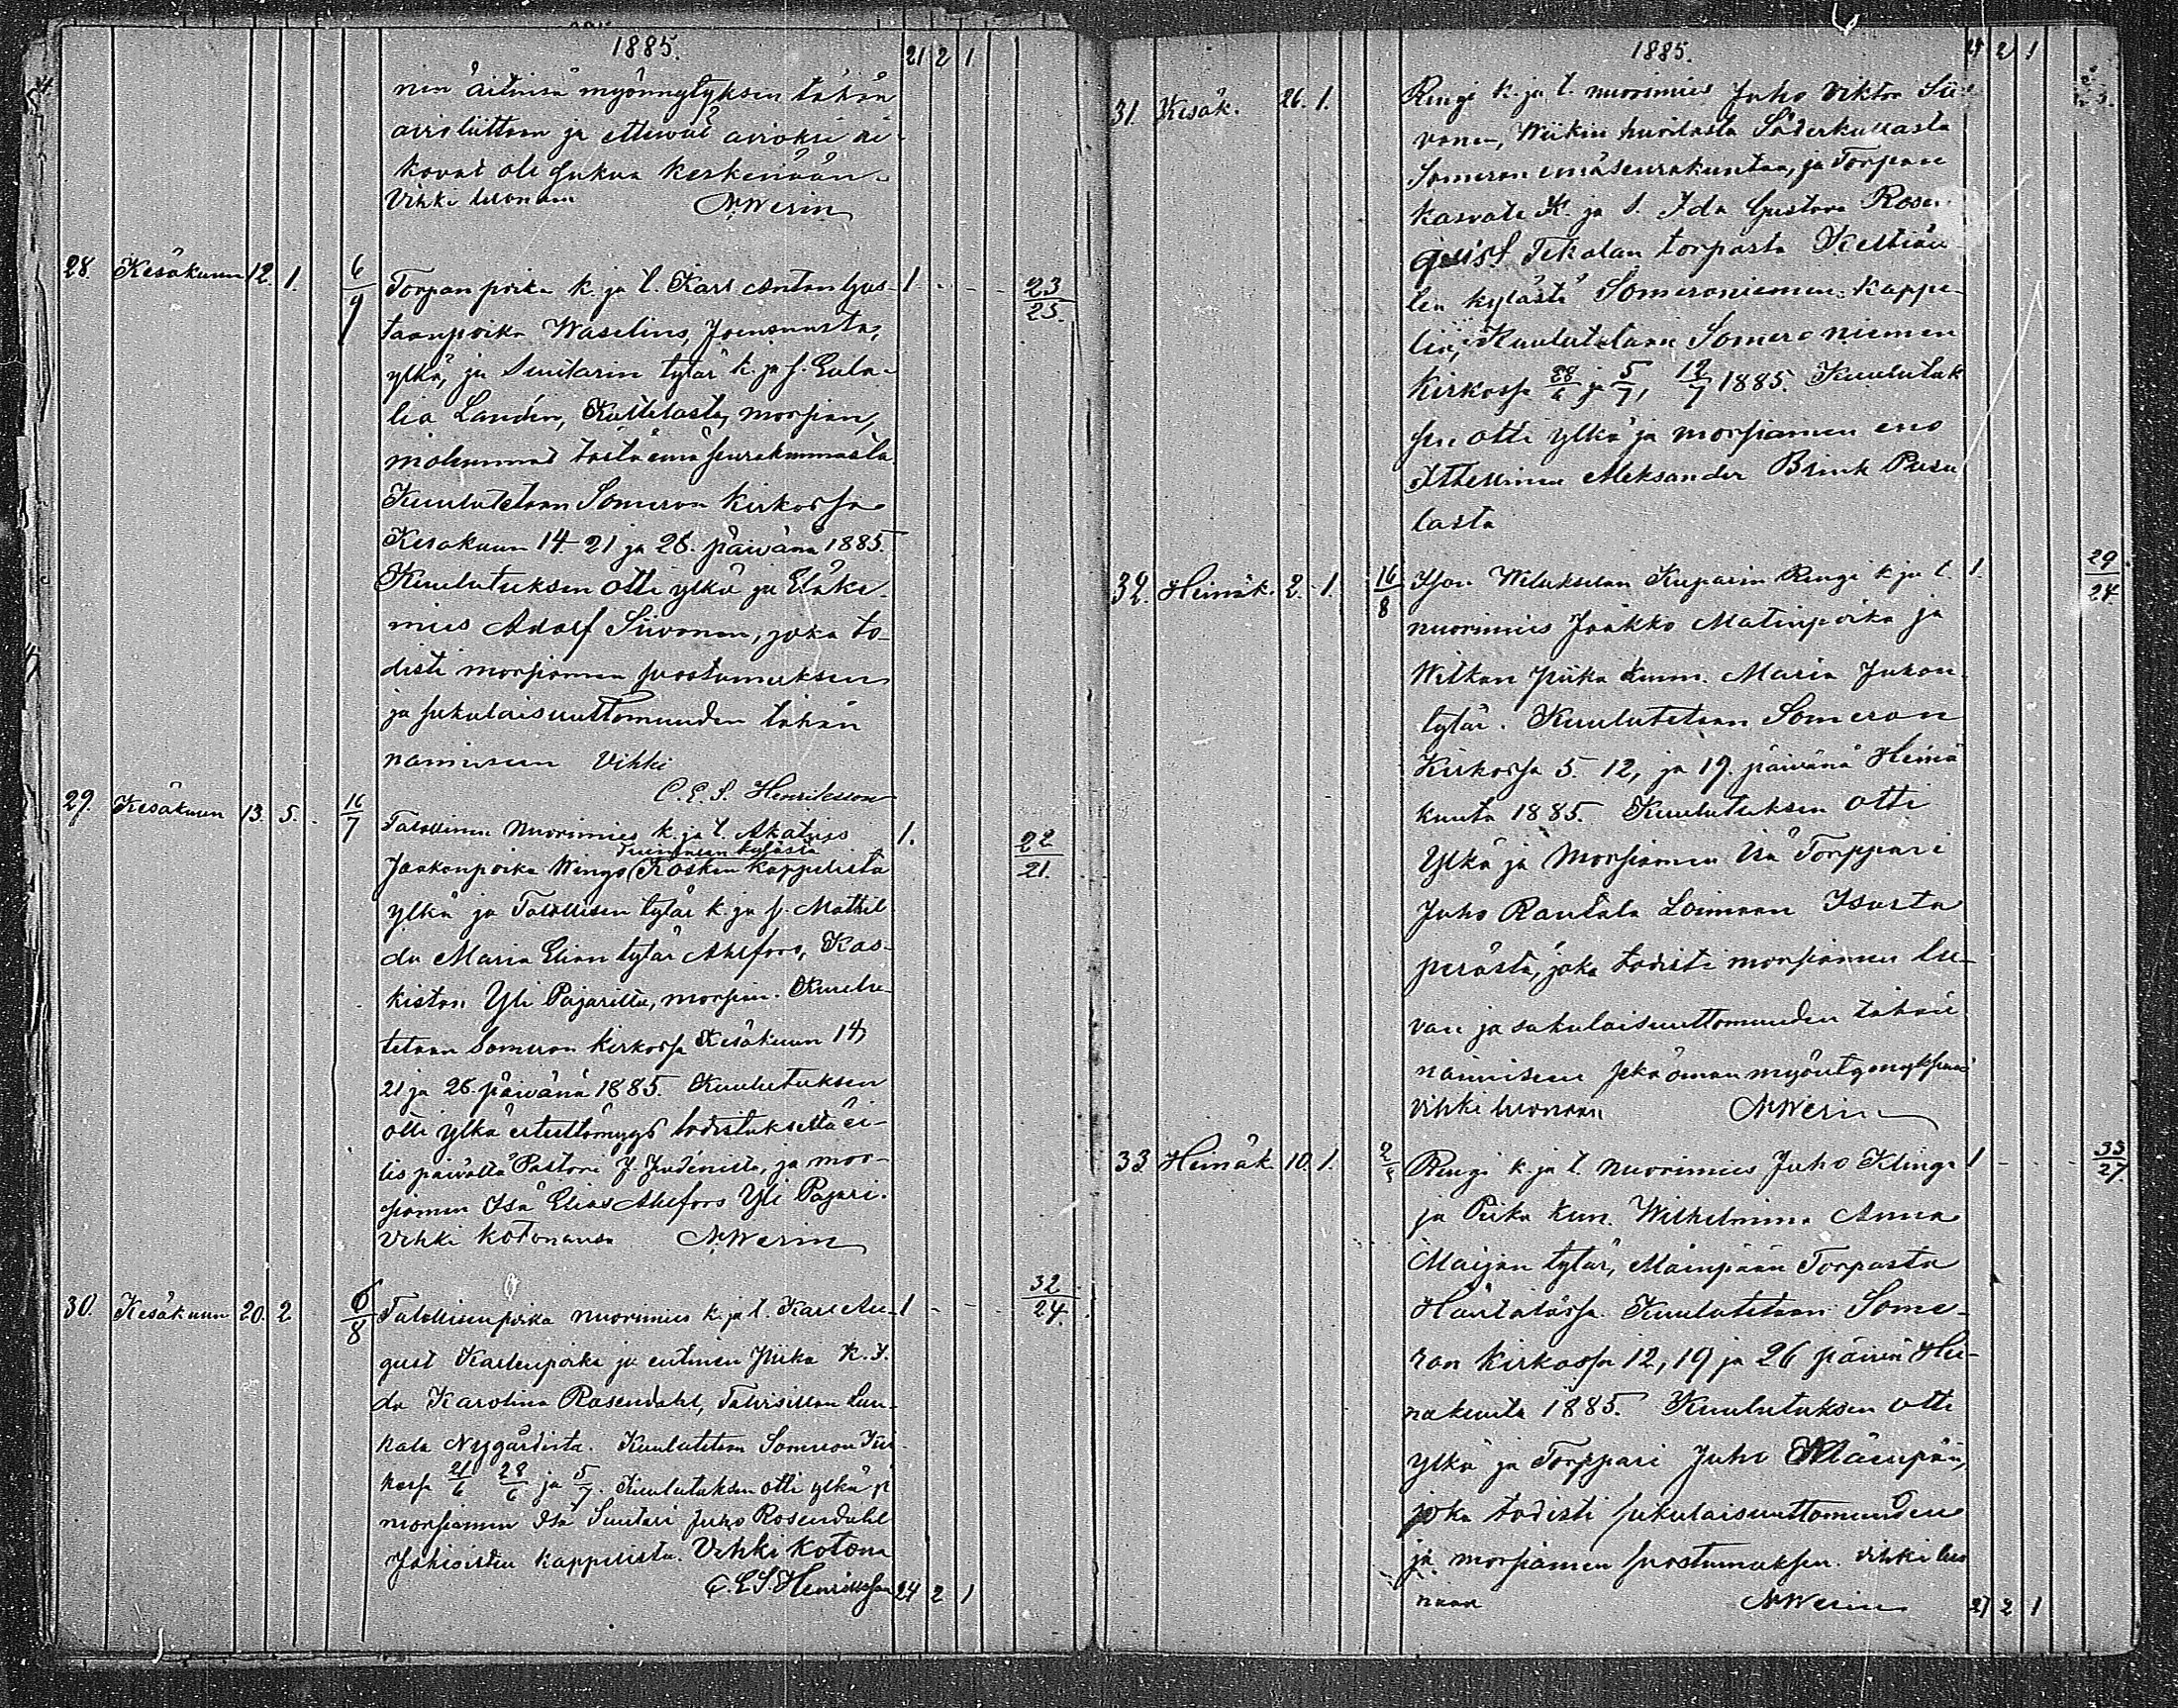 1885.
21 2 1
nin äitinsä myönnytyksen tähän
avioliittoon ja etteivät avioksi ai-
kovat ole sukua keskenään.
Vihki luonam N. Werin
28. Kesäkuun 12. 1. 6/9 Torpan poika k. ja l. Karl Anton Gus- 1 - - - 23/25.
taanpoika Waselius, Joensuusta,
ylkä, ja Suutarin tytär k. ja s. Eula-
lia Landén, morsian,
molemmat tästä emäseurakunnasta.
Kuulutetaan Someron Kirkossa
Kesäkuun 14. 21 ja 28. päivänä 1885.
Kuulutuksen otti ylkä ja Eläke-
mies Adolf Siivonen, joka to-
disti morsiamen suostumuksen
ja sukulaisuuttomuuden tähän
naimiseen Vihki
C. E. S. Henriksson
29. Kesäkuun 13. 5. 16/7 Talollinen Nuorimies k. ja l. Akatius 1. 22/21.
kylästä
Jaakonpoika Wingo Kosken Kappelista
ylkä ja Talollisen tytär k. ja s. Mathil-
da Maria Elian tytär Ahlfors, Kas-
kiston Yli Pajarilta, morsian. Kuulu-
tetaan Someron kirkossa Kesäkuun 14,
21 ja 28. päivänä 1885. Kuulutuksen
otti ylkä esteettömyys todistuksella ei-
lis päivältä Pastori J. Judénista, ja mor-
siamen Isä Elias Ahlfors Yli Pajari.
Vihki kotonansa N. Werin
30. Kesäkuun 20. 2 6/8 Talollisenpoika nuorimies k. ja l. Karl Au- 1 - - 32/24.
gust Kallenpoika ja entinen Piika K. I-
da Karolina Rosendahl,
kala Nygårdista. Kuulutetaan Someron Kir-
kossa 21/6 28/6 ja 5/7. Kuulutuksen otti ylkä ja
morsiamen Isä Suutari Juho Rosendahl
Jokioisten kappelista. Vihki kotona
C. E. S. Henriksson 24 2 1
1885.
24 2 1
31. Kesäk. 26. 1. Rengi k. ja l. nuorimies Juho Viktor Sii-
vonen, Wiikin huvilasta Söderkullasta
Someron emäseurakuntaa, ja Torpan
kasvate K. ja s. Ida Gustava Rosen-
qvist Tekalan torpasta
len kylästä Someroniemen Kappe-
lia, Kuulutetaan Someroniemen
Kirkossa 28/6 ja 5/7, 12/7 1885. Kuulutuk-
sen otti ylkä ja morsiamen eno
Itsellinen Aleksander Brink Pusu-
lasta
32. Heinäk. 2. 1. 16/8 Ison Wilukselan Kuparin Rengi k. ja l. 1. 29/24.
nuorimies Jaakko Matinpoika ja
Wilkan piika kunn. Maria Juhan-
tytär. Kuulutetaan Someron
Kirkossa 5. 12, ja 19. päivänä Heinä-
kuuta 1885. Kuulutuksen otti
Ylkä ja Morsiamen Isä Torppari
Juho Rautala Loimaan Isosta
perästä, joka todisti morsiamen lu-
van ja sukulaisuuttomuuden tähän
naimiseen sekä oman myöntymyksensä
Vihki luonaan N. Werin
33. Heinäk. 10. 1. Rengi k. ja l. Nuorimies Juho Klinga 1 - - - 33/27.
ja Piika kun. Wilhelmina Anna
Maijan tytär, Mäenpään Torpasta
Häntälässä. Kuulutetaan Some-
ron kirkossa 12, 19 ja 26 päivä Hei-
näkuuta 1885. Kuulutuksen otti
ylkä ja Torppari Juho Mäenpää,
joka todisti sukulaisuuttomuuden
ja morsiamen suostumuksen. Vihki luo-
naan N. Werin 27 2 1